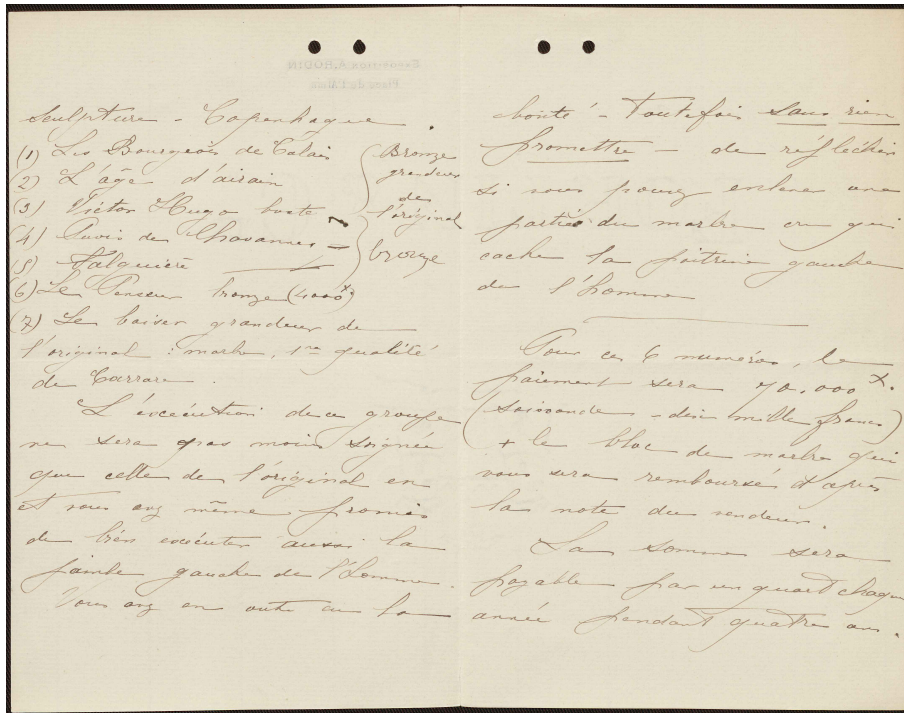 Sculpture - Copenhague.
(1) Les Bourgeois de Calais
2) L'âge d'airain
(3) Victor Hugo buste
(4) Puvis de Chavannes -
(5) Falguière
Bronze
grandeur
de
l'original
bronze
(6) Le Penseur bronze (4000 x.)
(7) Le baiser grandeur de
l'original : marbre, 1re qualité
de Carrare.
L'exécution de ce groupe
ne sera pas moins soignée
que celle de l'original en
et vous avez même promis
de bien exécuter aussi la
jambe gauche de l'homme.
Vous avez en outre eu la
bonté - toutefois sans rien
promettre - de réfléchir
si vous pouvez enlever une
partie du marbre cru qui
cache la poitrine gauche
de l'homme
Pour ces 6 numéros, le
paiement sera 70.000 x.
(soissande - dix mille francs)
+ le bloc de marbre qui
vous sera remboursé d'après
la note du vendeur.
La somme sera
payable par un quart chaque
année pendant quatre ans.
EXPOSITION A. RODIN
Place de l'Alma